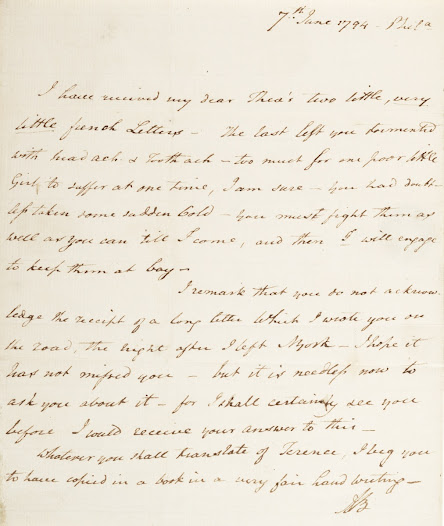 7th June 1794 - Phila
I have received my dear Thea's two little, very
little french Letters - The last left you tormented
with head ach & Tooth ach - too much for one poor little
Girl to suffer at one time, I am sure - you had doubt-
less taken some sudden Cold - you must fight them as
well as you can 'till I come, and then I will engage
to keep them at bay -
I remark that you do not acknow
ledge the receipt of a long letter which I wrote you on
the road, the night after I left NYork - I hope it
has not missed you - but it is needless now to
ask you about it - for I shall certainly see you
before I would receive your answer to this -
Whatever you shall translate of Terence, I beg you
to have copied in a book in a very fair hand writing -
AB